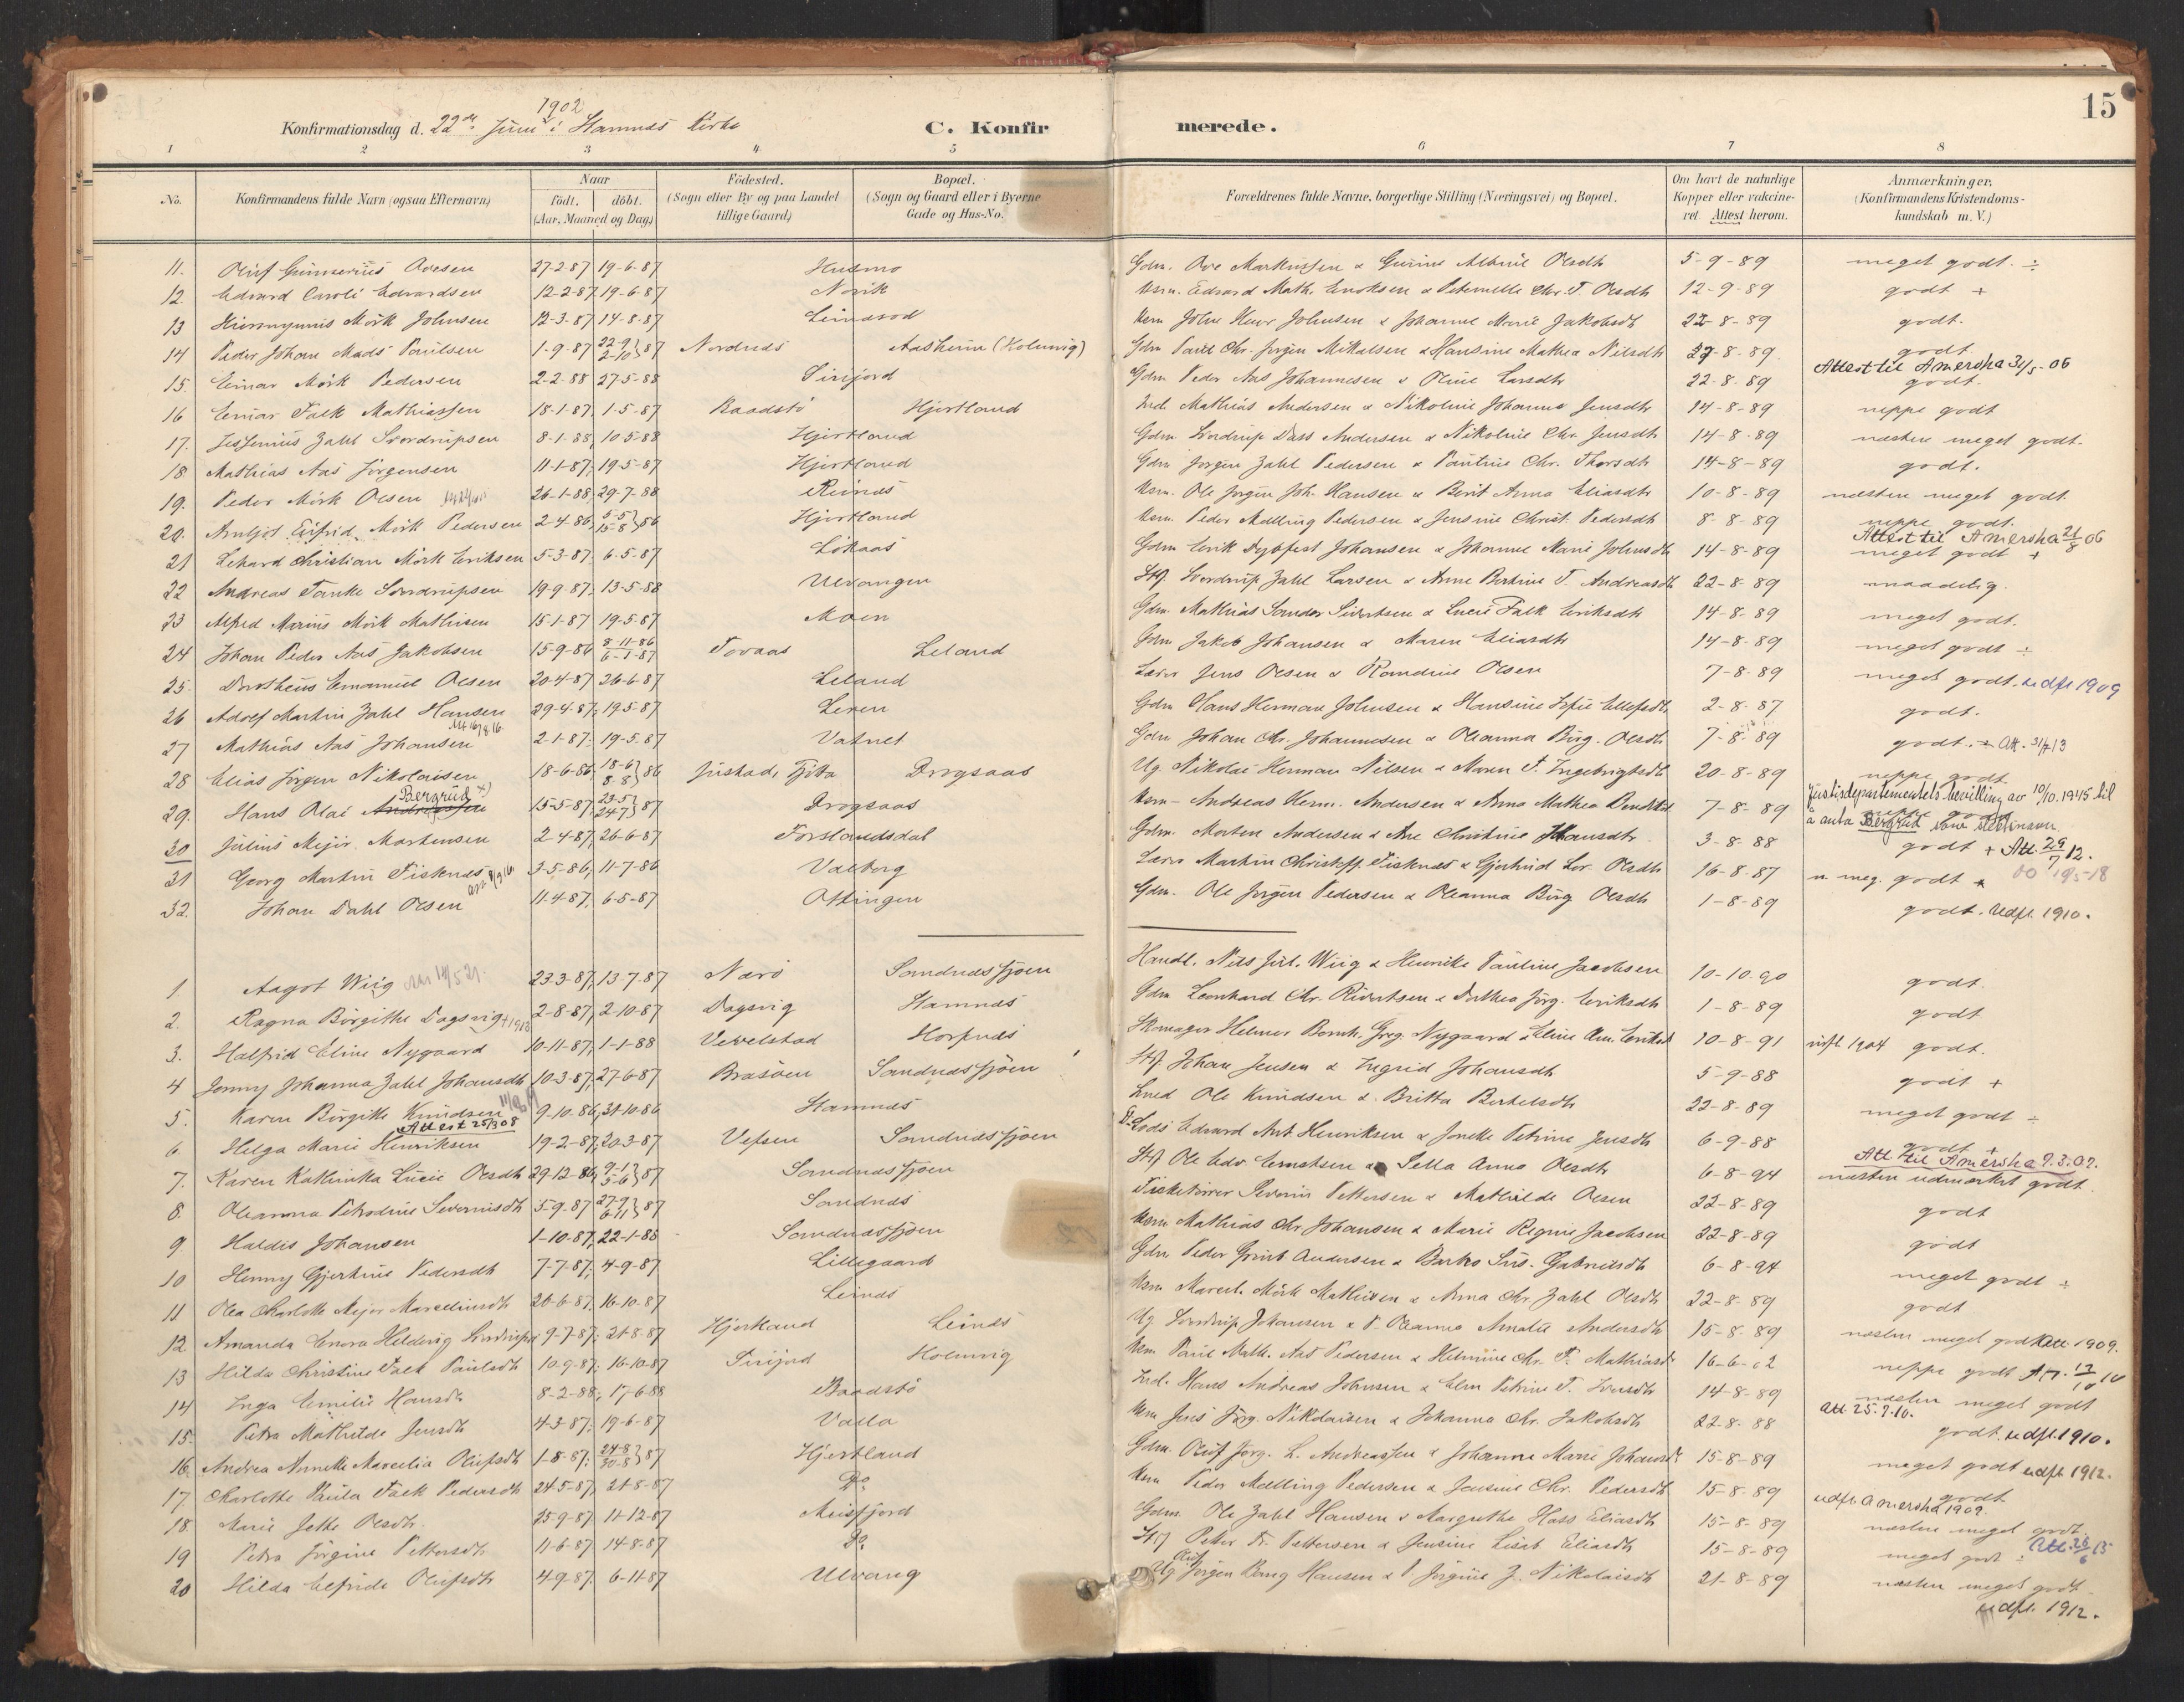 15
1902
Konfirmationsdag d. 22de Juni i Hamnes Kirke
C. Konfirmerede.
1 2 3 4 5 6 7 8
No.
Konfirmandens fulde Navn (ogsaa Efternavn)
Naar
födt. döbt.
(Aar, Maaned og Dag)
Födested.
(Sogn eller By og paa Landet
tillige Gaard)
Bopæl.
(Sogn og Gaard eller i Byerne
Gade og Hus-No.
Forældrenes fulde Navne, borgerlige Stilling (Næringsvei) og Bopæl.
Om havt de naturlige
Kopper eller vakcine-
ret. Attest herom.
Anmærkninger.
(Konfirmandens Kristendoms-
kundskab m. V.)
11. Oluf Ovesen 27-2-87 19-6-87 Husmo Gdm. Ove 5-9-89 meget godt. ÷
12. Edvard Edvardsen 12-2-87 19-6-87 Edvard Math. 12-9-89 godt +
13 Hieronymus Mörk Johnsen 12-3-87 14-8-87 Johanne Marie Jakobsdt 22-8-89 godt.
14 Peder Johan Mads Paulsen 1-9-87 22-9 2-10 87 Nordnes Aasheim (Holmvig) Gdm Paul Chr. Jörgen Mikalsen & Hansine Mathea Nilsdt 27-8-89 godt
15. Einar Mörk Pedersen 2-2-88 27-5-88 Sirifjord Gdm Peder Aas Johannesen & Oline Larsdt 22-8-89 Attest til Amerika 31/5-06 godt.
16 Einar Falk Mathiassen 18-1-87 1-5-87 Baadstö Hjortland Ind. Mathias Andersen & Nikoline Johanna Jensdt 14-8-89 neppe godt
17. Zahl Sverdrupsen 8-1-88 10-5-88 Hjortland Gdm. Sverdrup Dass Andersen & Nikoline Chr. Jensdt 14-8-89 næsten meget godt.
18. Mathias Aas Jörgensen 11-1-87 19-5-87 Hjortland Gdm Jörgen Zahl Pedersen & Pauline Chr. Thorsdt 14-8-89 godt.
19. Peder Mörk Olsen 26-1-88 29-7-88 Reines Usm. Ole Jörgen Joh. Hansen & Berit Anna Eliasdt 10-8-89 næsten meget godt
20. Arnljot Eifrid Mörk Pedersen 2-4-86 5-5 15-8 86 Hjortland Usm. Peder Mælling Pedersen & Jensine Christ. Pedersdt 8-8-89 neppe godt.
21 Edvard Christian Mörk Eriksen 5-3-87 6-5-87 Lökaas Gdm Erik Dybfest Johansen & Johanne Marie Johnsdt 14-8-89 Attest til Amerika 21/8 06 meget godt +
22 Andreas Tanke Sverdrupsen 19-9-87 13-5-88 Ulvangen Stf. Sverdrup Zahl Larsen & Anne Bertine T. Andreasdt 22-8-89 maadelig.
23 Alfred Marius Mörk Mathisen 15-1-87 19-5-87 Moen Gdm. Mathias Sander Sivertsen & Lucie Falk Eriksdt 14-8-89 meget godt.
24 Johan Peder Aas Jakobsen 15-9-86 8-11-86 6-1-87 Tovaas Leland Gdm. Jakob Johansen & Maren Eliasdt 14-8-89 meget godt ÷
25. Dorotheus Emanuel Olsen 20-4-87 26-6-87 Leland Lærer Jens Olsen & Olsen 7-8-89 meget godt. udfl 1909
26 Adolf Martin Zahl Hansen 29-4-87 19-5-87 Leren Gdm Hans Herman Johnsen & Hansine Sofie Ellefsdt. 2-8-87 godt.
27 Mathias Aas Johansen 2-1-87 19-5-87 Vatnet Gdm Johan Chr. Johannesen & Oleanna Birg. Olsdt 7-8-89 godt. ÷ Att. 31/7 13
28 Elias Jörgen Nikolaisen 18-6-86 18-6 8-8 86 Tjöta Drogsaas Ug. Nikolai Herman Nilsen & Maren F. Ingebrigtsdt 20-8-89 neppe godt
29. Hans Olai Andreassen Bergrud x) 15-5-87 23-5 24-7 87 Drogsaas Usm- Andreas Herm. Andersen & Anna Mathea 7-8-89 Justisdepartementets bevilling av 10/10.1945 til å anta Bergrud som slektsnavn
30 Julius Mejer Mortensen 2-4-87 26-6-87 Forslandsdal Gdm. Morten Andersen & Ane Christine Hansdt 3-8-88 godt + Att. 29/7 12.
31 Georg Martin Fisknes 3-5-86 11-7-86 Valberg Lærer Martin Christoff. Fisknes & Gjertrud Olsdt 16-8-87 n. meg. godt
32. Johan Dahl Olsen 11-4-87 6-5-87 Offingen Gdm. Ole Jörgen Pedersen & Oleanna Birg Olsdt 1-8-89 godt. Udfl. 1910.
1 Aagot Wiig 23-3-87 13-7-87 Nærö Sandnessjöen Handl. Nils Jul. Wiig & Henrikke Pauline Jacobsen 10-10-90 godt.
2. Ragna Birgitte Dagsvig 2-8-87 2-10-87 Dagsvig Hamnes Gdm Leonhard Chr. Sivertsen & Dorthea Jörg. Eriksdt 1-8-89 godt
3. Halfrid Eline Nygaard 10-11-87 1-1-88 Vevelstad Skomager Helmer Bernh. Greg. Nygaard & Eline Am. 10-8-91 1904 godt.
4 Jenny Johanna Zahl Johansdt 10-3-87 27-6-87 Brasöen Sandnessjöen Stf. Johan Jensen & Ingrid Johansdt 5-9-88 godt +
5. Karen Birgitte Knudsen 9-10-86 31-10-86 Hamnes Ole Knudsen & Britta Bertelsdt 22-8-89 meget godt ÷
6. Helga Marie Henriksen Attest 25/3 08 19-2-87 20-3-87 Vefsen Sandnessjöen Lods Edvard Ant Henriksen & Petrine Jensdt 6-9-88 godt +
7. Karen Kathinka Lucie Olsdt 29-12-86 9-1 5-6 87 Sandnessjöen Stf Ole Edv. & Sella Anna Olsdt 6-8-94 Att til Amerika 9.3.07. næsten udmærket godt
8. Oleanna Petrodine Severinsdt 5-9-87 27-9 6-11 87 Sandnes Severin Pettersen & Mathilde Olsen 22-8-89 godt
9 Haldis Johansen 1-10-87 22-1-88 Sandnessjöen Usm Mathias Chr. Johansen & Marie Regine Jacobsen 22-8-89 godt
10 Henny Gjertine Pedersdt 7-7-87 4-9-87 Lillegaard Gdm Peder Andersen & Gabrielsdt 6-8-94 meget godt ÷
11 Olea Charlotte Mejer Marceliusdt 26-6-87 16-10-87 Leines Usm. Marcel. Mörk Mathisen & Anna Chr. Zahl Olsdt 22-8-89 godt
12 Amanda Enora Heldevig 9-7-87 21-8-87 Hjortland Leines Ug. Sverdrup Johansen & P. Oleanna Amalie Andersdt 15-8-89 næsten meget godt Att 1909.
13 Hilda Christine Falk Paulsdt 10-9-87 16-10-87 Sirifjord Holmvig Usm Paul Math. Aas Pedersen & Helmine Chr. F. Mathiasd 16-6-02 neppe godt Att. 13/10 10
14 Inga Emilie Hansdt 8-2-88 17-6-88 Baadstö Ind. Hans Andreas Johnsen & Elen Petrine T. 14-8-89 næsten meget godt
15. Petra Mathilde Jensdt 4-3-87 19-6-87 Valla Usm Jens Jörg. Nikolaisen & Johanna Chr. Jakobsdt 22-8-88 Att. 25-7-10. godt. udfl. 1910.
16. Andrea Annette Marcelia Olufsdt 1-8-87 24-8 30-8 87 Hjortland Gdm. Oluf Jörg. L. Andreassen & Johanna Marie Johansd. 15-8-89 meget godt udfl 1912.
17. Charlotte Paula Falk Pedersdt 24-5-87 21-8-87 Do. Usm Peder Mælling Pedersen & Jensine Chr. Pedersdt 15-8-89 godt
18. Marie Jette Olsdt. 25-9-87 11-12-87 Meisfjord Gdm. Ole Zahl Hansen & Margrethe Hass Eliasdt 15-8-89 udfl. Amerika 1909. næsten meget godt.
19 Petra Jörgine Pettersdt 11-6-87 14-8-87 Do. Stf Petter Fr. Pettersen & Jensine Lisab Eliasdt 15-8-89 meget godt ÷ Att. 26/6 15
20 Hilda Elfride Olufsdt 4-9-87 6-11-87 Ulvang Ug Oluf Jörgen Bang Hansen & Jörgine Z. Nikolaisdt 21-8-89 næsten meget godt
udfl. 1912.